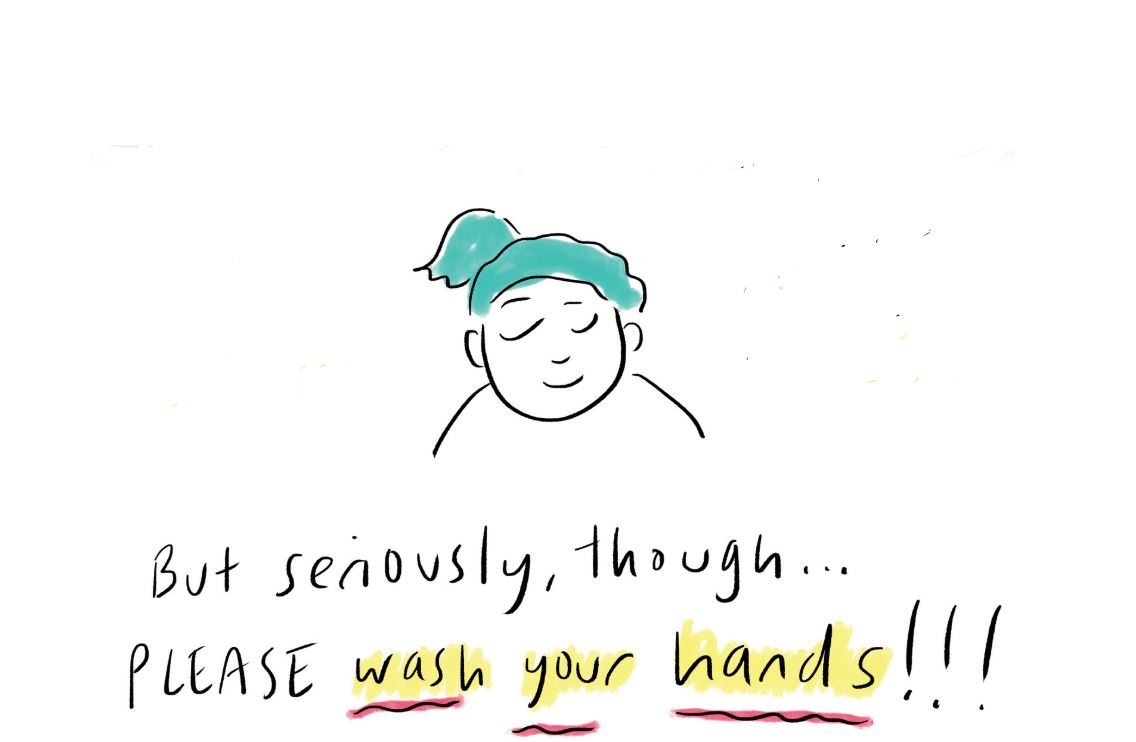 But seriously, though...
PLEASE wash your hands!!!